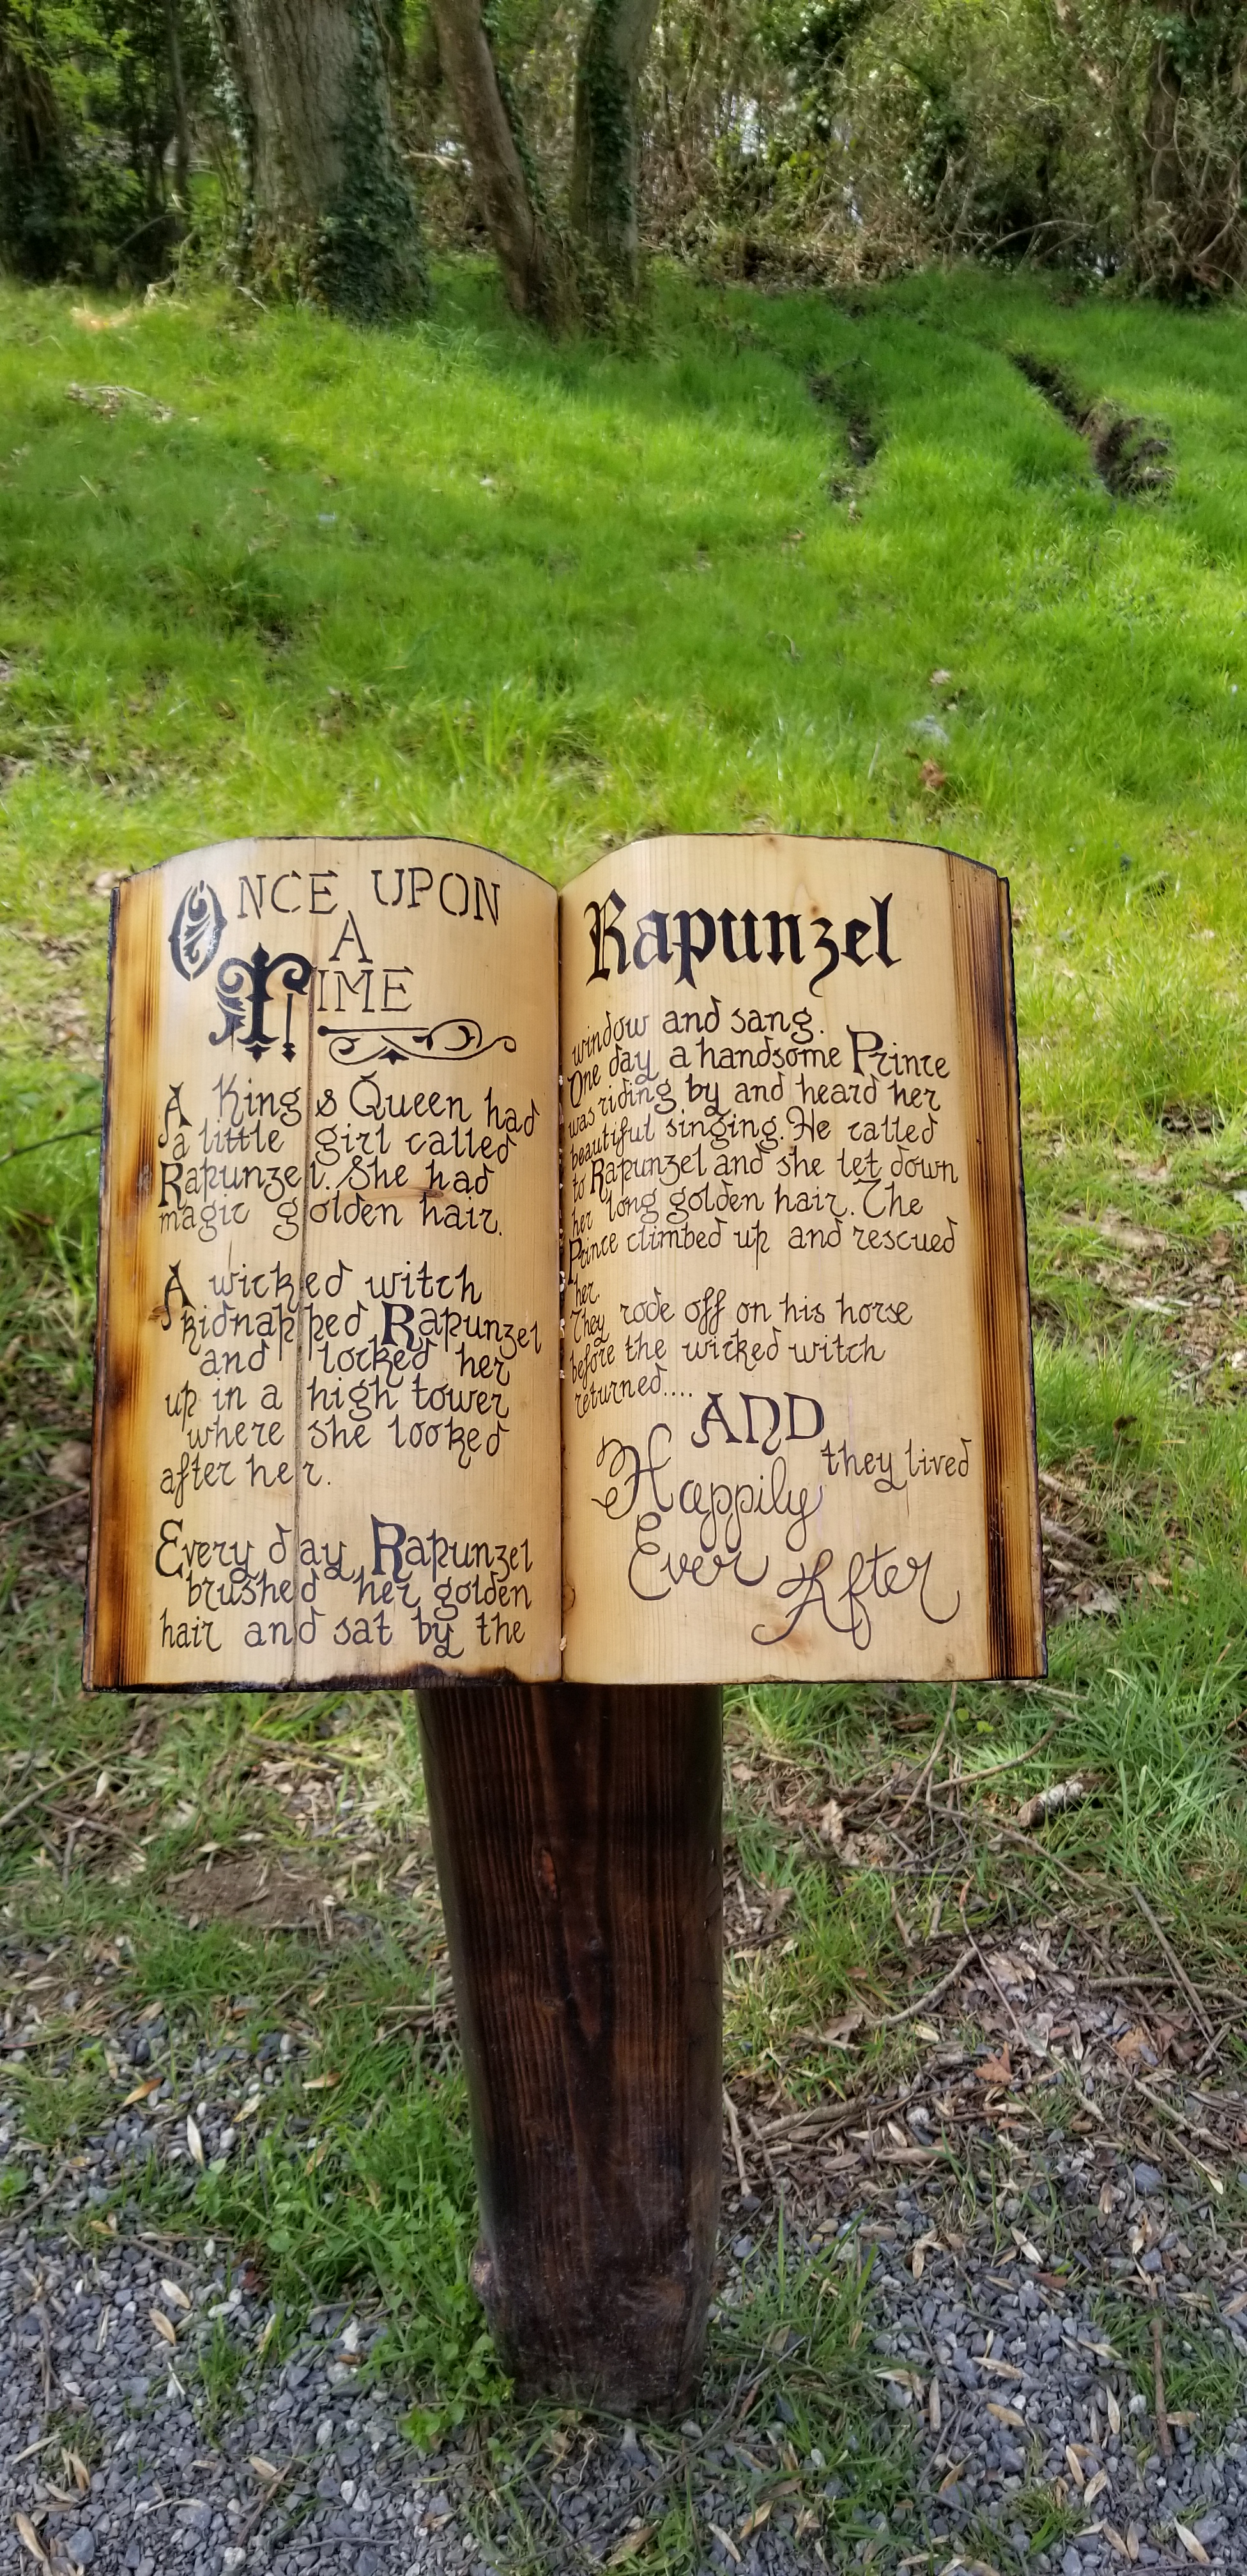 ONCE UPON
A
TIME
A King & Queen had
a little girl called
Rapunzel. She had
magic golden hair.
A wicked witch
kidnapped Rapunzel
and locked her
up in a high tower
where she looked
after her.
Every day Rapunzel
brushed her golden
hair and sat by the
Rapunzel
window and sang.
One day a handsome Prince
was riding by and heard her
beautiful singing. He called
to Rapunzel and she let down
her long golden hair. The
Prince climbed up and rescued
her.
They rode off on his horse
before the wicked witch
returned....
AND
they lived
Happily
Ever After